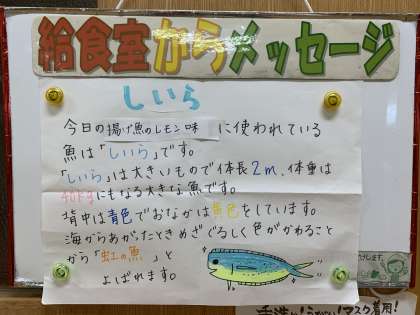 給食室からメッセージ
しいら
今日の揚げ魚のレモン味に使われている
魚は「しいら」です。
「しいら」は大きいもので体長2m、体重は
40kgにもなる大きな魚です。
背中は青色でおなかは黄色をしています。
海からあがったときめざぐるしく色がかわること
から「虹の魚」と
よばれます。
手洗い!うがい!マスク着用!